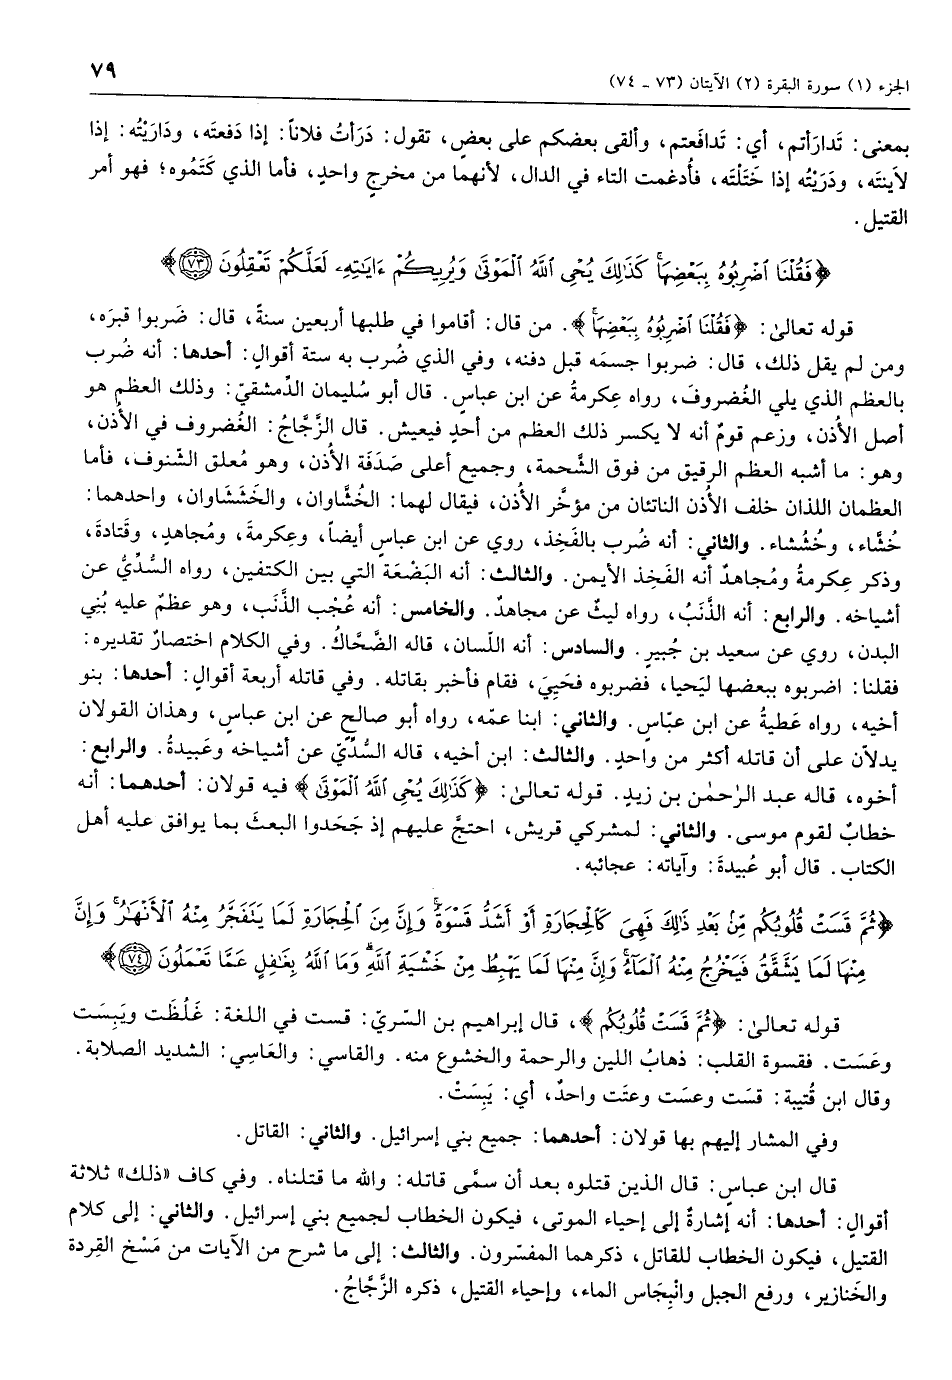 الجزء (١) سورة البقرة (٢) الآيتان (٧٣ ـ ٧٤)
٧٩
بمعنى: تَدارَأتم، أي: تَدافَعتم، وألقى بعضكم على بعضٍ، تقول: دَرَأتُ فلاناً: إذا دَفعتَه، ودَارَيْتُه: إذا
لاَينتَه، ودَرَيْتُه إذا خَتَلْتَه، فأُدغمت التاء في الدال، لأنهما من مخرجٍ واحدٍ، فأما الذي كَتَمُوه؛ فهو أمر
القتيل.
﴿فَقُلْنَا اضْرِبُوهُ بِبَعْضِهَاۚ كَذَٰلِكَ يُحْىِ اللَّهُ الْمَوْتَىٰ وَيُرِيكُمْ ءَايَٰتِهِۦ لَعَلَّكُمْ تَعْقِلُونَ ٧٣﴾
قوله تعالىٰ: ﴿فَقُلْنَا اضْرِبُوهُ بِبَعْضِهَاۚ﴾. من قال: أقاموا في طلبها أربعين سنةً، قال: ضَربوا قبرَه،
ومن لم يقل ذلك، قال: ضربوا جسمَه قبل دفنه، وفي الذي ضُرب به ستة أقوالٍ: أحدها: أنه ضُرب
بالعظم الذي يلي الغُضروفَ، رواه عِكرمةُ عن ابن عباسٍ. قال أبو سُليمان الدِّمشقيّ: وذلك العظم هو
أصل الأُذن، وزعم قومٌ أنه لا يكسر ذلك العظم من أحدٍ فيعيش. قال الزَّجَّاجُ: الغُضروف في الأُذن،
وهو: ما أشبه العظم الرقيق من فوق الشَّحمة، وجميع أعلى صَدَفَة الأُذن، وهو مُعلق الشّنوف، فأما
العظمان اللذان خلف الأُذن الناتئان من مؤخَّر الأُذن، فيقال لهما: الخُشَّاوان، والخَشَشَاوان، واحدهما:
خُشَّاء، وخُشُشاء. والثاني: أنه ضُرب بالفَخِذ، روي عن ابن عباسٍ أيضاً، وعِكرمةَ، ومُجاهدٍ، وقَتادةَ،
وذكر عِكرمةُ ومُجاهدٌ أنه الفَخِذ الأيمن. والثالث: أنه البَضْعَة التي بين الكتفين، رواه السُّدِّيُّ عن
أشياخه. والرابع: أنه الذَّنَبُ، رواه ليثٌ عن مجاهدٍ. والخامس: أنه عُجْب الذَّنَب، وهو عظمٌ عليه بُنِي
البدن، روي عن سعيد بن جُبيرٍ. والسادس: أنه اللّسان، قاله الضَّحّاكُ. وفي الكلام اختصارٌ تقديره:
فقلنا: اضربوه ببعضها لِيَحيا، فضربوه فحَيِيَ، فقام فأخبر بقاتله. وفي قاتله أربعة أقوالٍ: أحدها: بنو
أخيه، رواه عَطيةُ عن ابن عبّاسٍ. والثاني: ابنا عمّه، رواه أبو صالحٍ عن ابن عباسٍ، وهذان القولان
يدلاّن على أن قاتله أكثر من واحدٍ. والثالث: ابن أخيه، قاله السُّدِّيّ عن أشياخه وعَبيدةُ. والرابع:
أخوه، قاله عبد الرحمٰن بن زيدٍ. قوله تعالىٰ: ﴿كَذَٰلِكَ يُحْىِ اللَّهُ الْمَوْتَىٰ﴾ فيه قولان: أحدهما: أنه
خطابٌ لقوم موسى. والثاني: لمشركي قريش، احتجَّ عليهم إذ جَحَدوا البعثَ بما يوافق عليه أهل
الكتاب. قال أبو عُبيدةَ: وآياته: عجائبه.
﴿ثُمَّ قَسَتْ قُلُوبُكُم مِّنۢ بَعْدِ ذَٰلِكَ فَهِىَ كَالْحِجَارَةِ أَوْ أَشَدُّ قَسْوَةًۚ وَإِنَّ مِنَ الْحِجَارَةِ لَمَا يَتَفَجَّرُ مِنْهُ الْأَنْهَٰرُۚ وَإِنَّ
مِنْهَا لَمَا يَشَّقَّقُ فَيَخْرُجُ مِنْهُ الْمَآءُۚ وَإِنَّ مِنْهَا لَمَا يَهْبِطُ مِنْ خَشْيَةِ اللَّهِۗ وَمَا اللَّهُ بِغَٰفِلٍ عَمَّا تَعْمَلُونَ ٧٤﴾
قوله تعالىٰ: ﴿ثُمَّ قَسَتْ قُلُوبُكُم﴾، قال إبراهيم بن السّريّ: قست في اللغة: غَلُظَت ويَبِسَت
وعَسَت. فقسوة القلب: ذهابُ اللين والرحمة والخشوع منه. والقاسي: والعَاسِي: الشديد الصلابة.
وقال ابن قُتيبة: قسَت وعسَت وعتَت واحدٌ، أي: يَبِسَتْ.
وفي المشار إليهم بها قولان: أحدهما: جميع بني إسرائيل. والثاني: القاتل.
قال ابن عباسٍ: قال الذين قتلوه بعد أن سمَّى قاتله: والله ما قتلناه. وفي كاف «ذلك» ثلاثة
أقوالٍ: أحدها: أنه إشارةٌ إلى إحياء الموتى، فيكون الخطاب لجميع بني إسرائيل. والثاني: إلى كلام
القتيل، فيكون الخطاب للقاتل، ذكرهما المفسّرون. والثالث: إلى ما شرح من الآيات من مَسْخ القِردة
والخَنازير، ورفع الجبل وانْبِجَاس الماء، وإحياء القتيل، ذكره الزَّجَّاجُ.